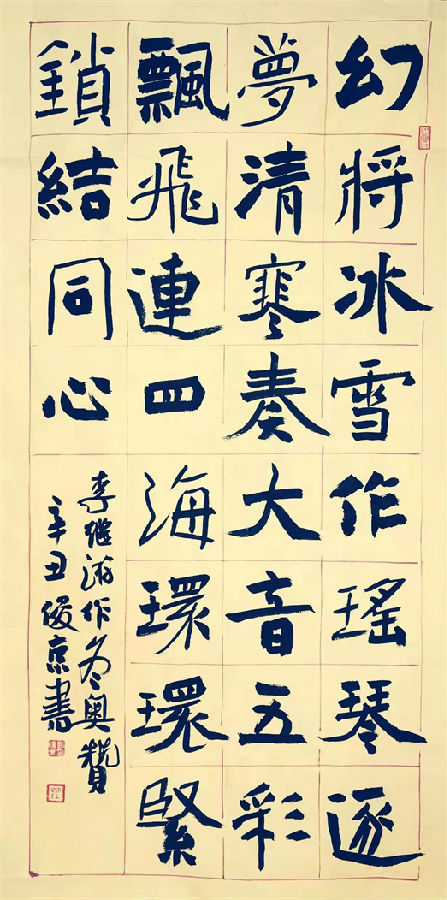 幻將冰雪作瑤琴逐
夢清寒奏大音五彩
飄飛連四海環環緊
鎖結同心
李繼游作冬奧贊
辛丑俊京書